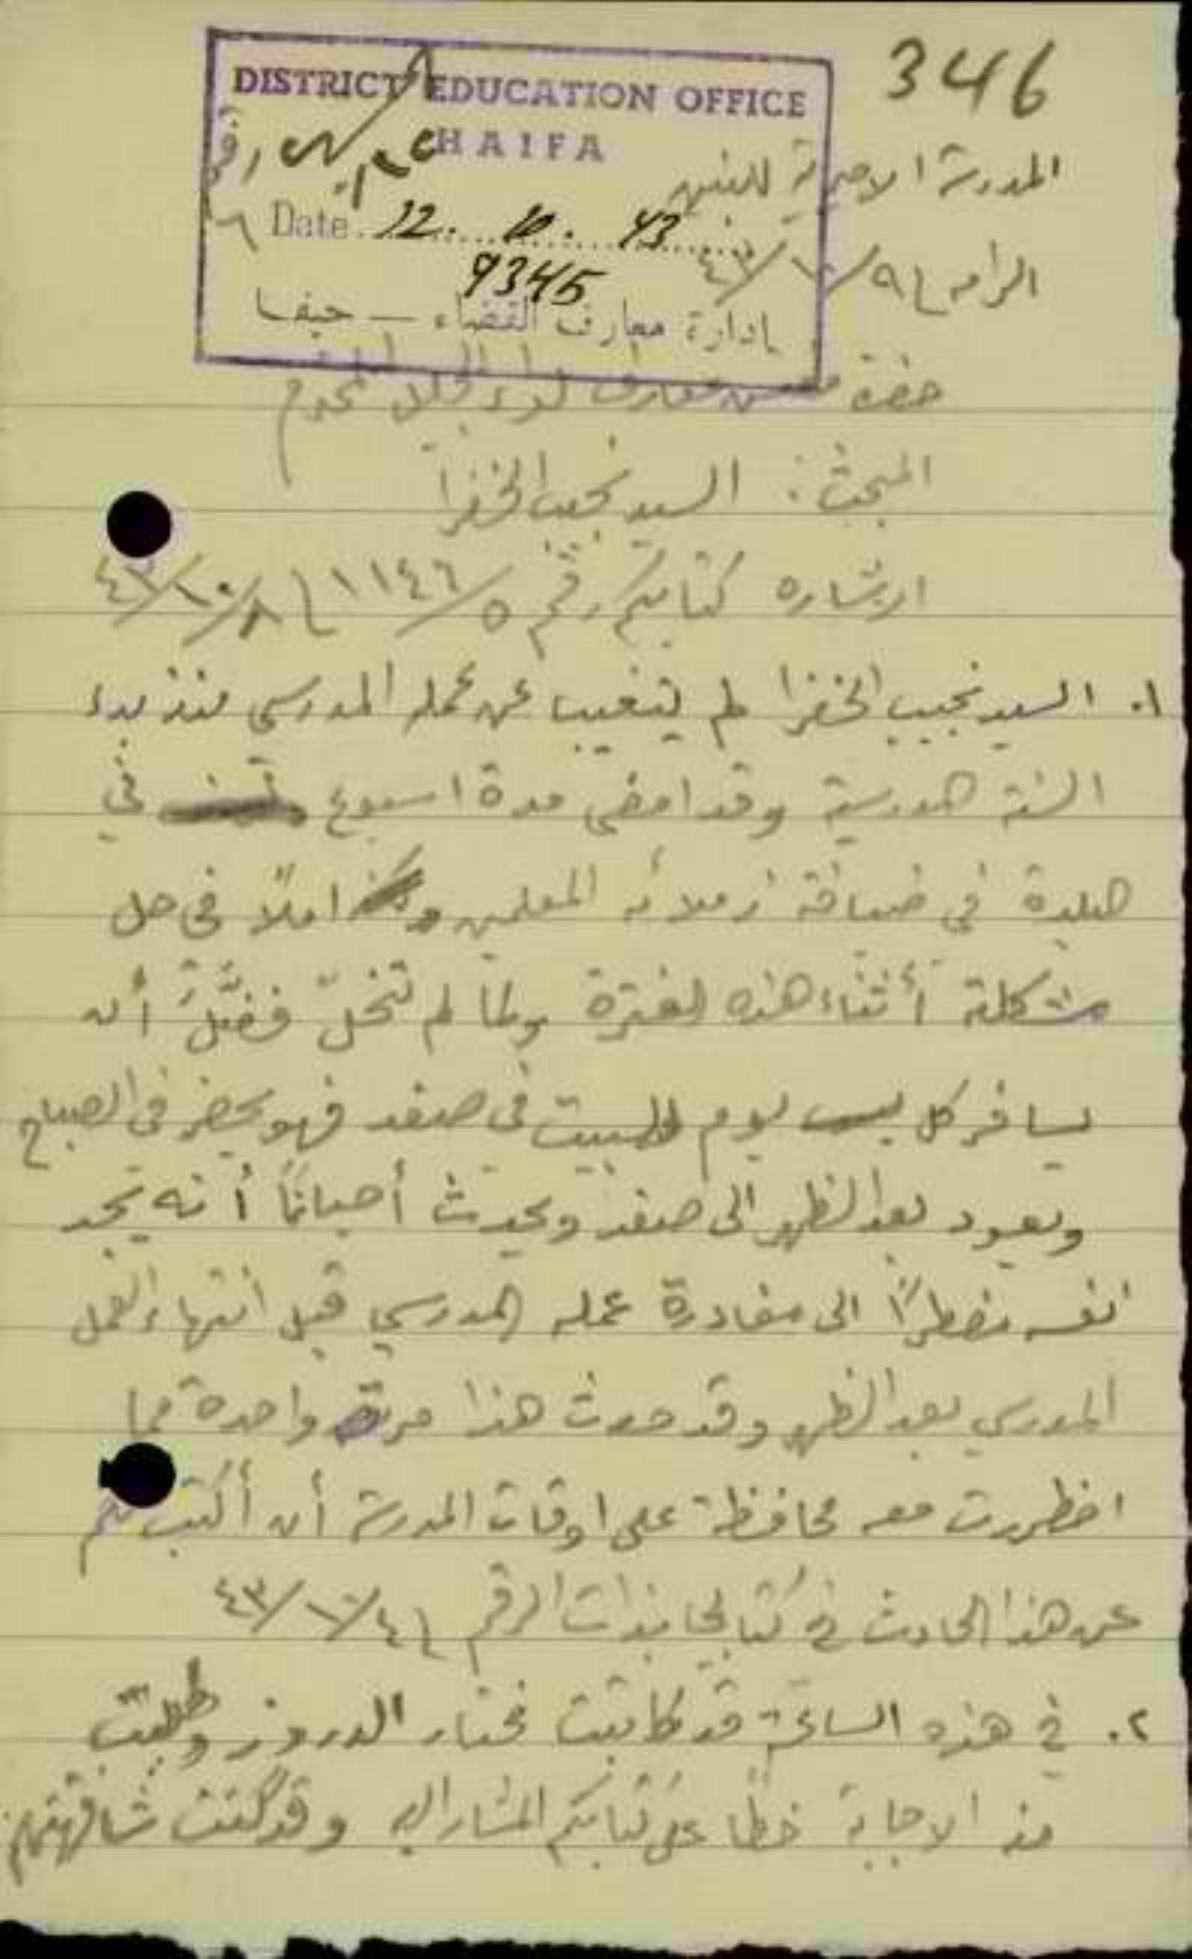 346
DISTRICT EDUCATION OFFICE
HAIFA
Date 12. 10. 43
9345
ادارة معارف القضاء — حيفا
رقم
المدرسة الاميرية للبنين
الرامه ٩/١٠/٤٣
حضرة مفتش معارف لواء الجليل المحترم
المبحث: السيد نجيب الخضرا
الاشاره كتابكم رقم ١١٤٦/٥ ٨/١٠/٤٣
١. السيد نجيب الخضرا لم يتغيب عن عمله المدرسي منذ بدء
السنة المدرسية وقد امضى مدة اسبوع في
البلدة في ضيافة زملائه المعلمين املاً في حل
مشكلة أثناء هذه الفترة ولما لم تنحلّ فضَّلَ أن
يسافر كل يوم للمبيت في صفد فهو يحضر في الصباح
ويعود بعد الظهر الى صفد ويحدث أحياناً أنه يجد
نفسه مضطراً الى مغادرة عمله المدرسي قبل انتهاء العمل
المدرسي بعد الظهر وقد حدث هذا مرة واحدة مما
اضطررت معه محافظة على اوقات المدرسة أن أكتب لكم
عن هذا الحادث في كتابي بذات الرقم ٤/١٠/٤٣
٢. في هذه الساعة قد كاتبت مختار الدروز وطلبت
منه الاجابة خطاً على كتابكم المشار اليه وقد كنت شافهتهم